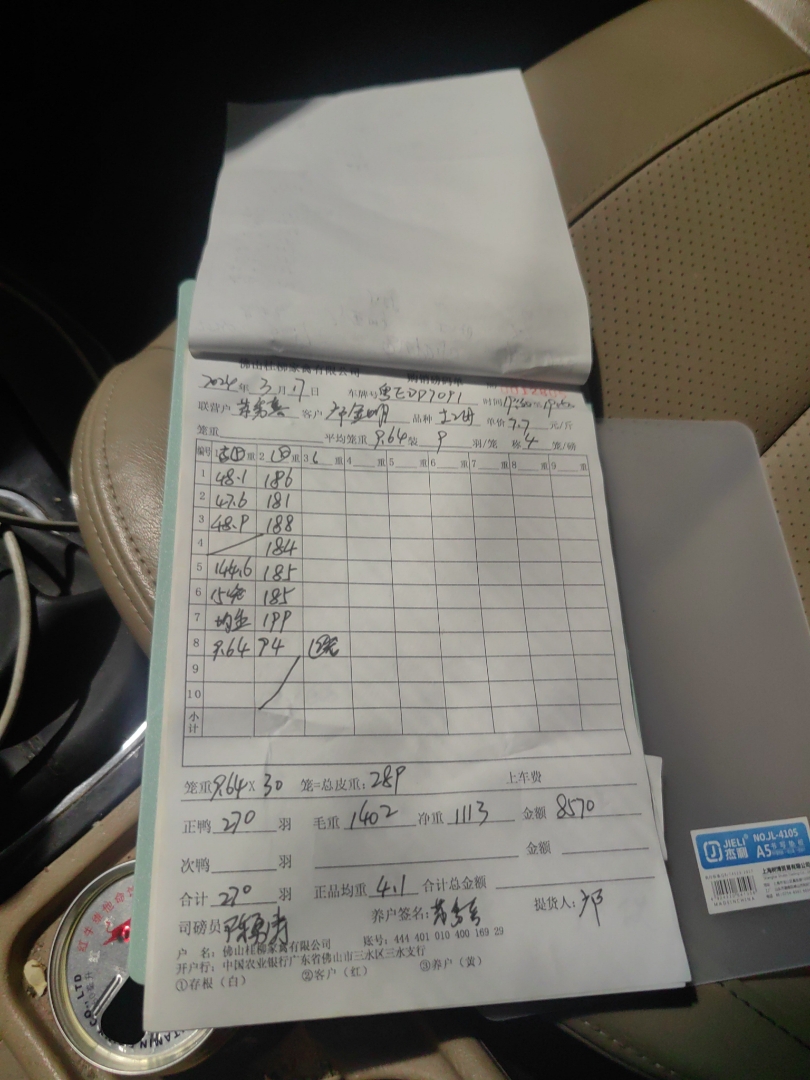 佛山桂柳家禽有限公司
2024年 3月 17日 车牌号 粤EDP7091 时间
联营户 客户 品种 单价 7.7 元/斤
笼重 平均笼重 9.64 装 9 羽/笼 称 4 笼/磅
编号 1 重 2 重 3 6 重 4 重 5 重 6 重 7 重 8 重 9 重
1 48.1 186
2 47.6 181
3 48.9 188
4 184
5 144.6 185
6 15笼 185
7 均重 199
8 9.64 94
9
10
小计
笼重 9.64 × 30 笼=总皮重: 289 上车费
正鸭 270 羽 毛重 1402 净重 1113 金额 8570
次鸭 羽 金额
合计 270 羽 正品均重 4.1 合计总金额
司磅员 养户签名: 提货人: 邓
户 名: 佛山桂柳家禽有限公司 账号: 444 401 010 400 169 29
开户行: 中国农业银行广东省佛山市三水区三水支行
①存根（白） ②客户（红） ③养户（黄）
JIELI 杰利
NO.JL-4105
A5